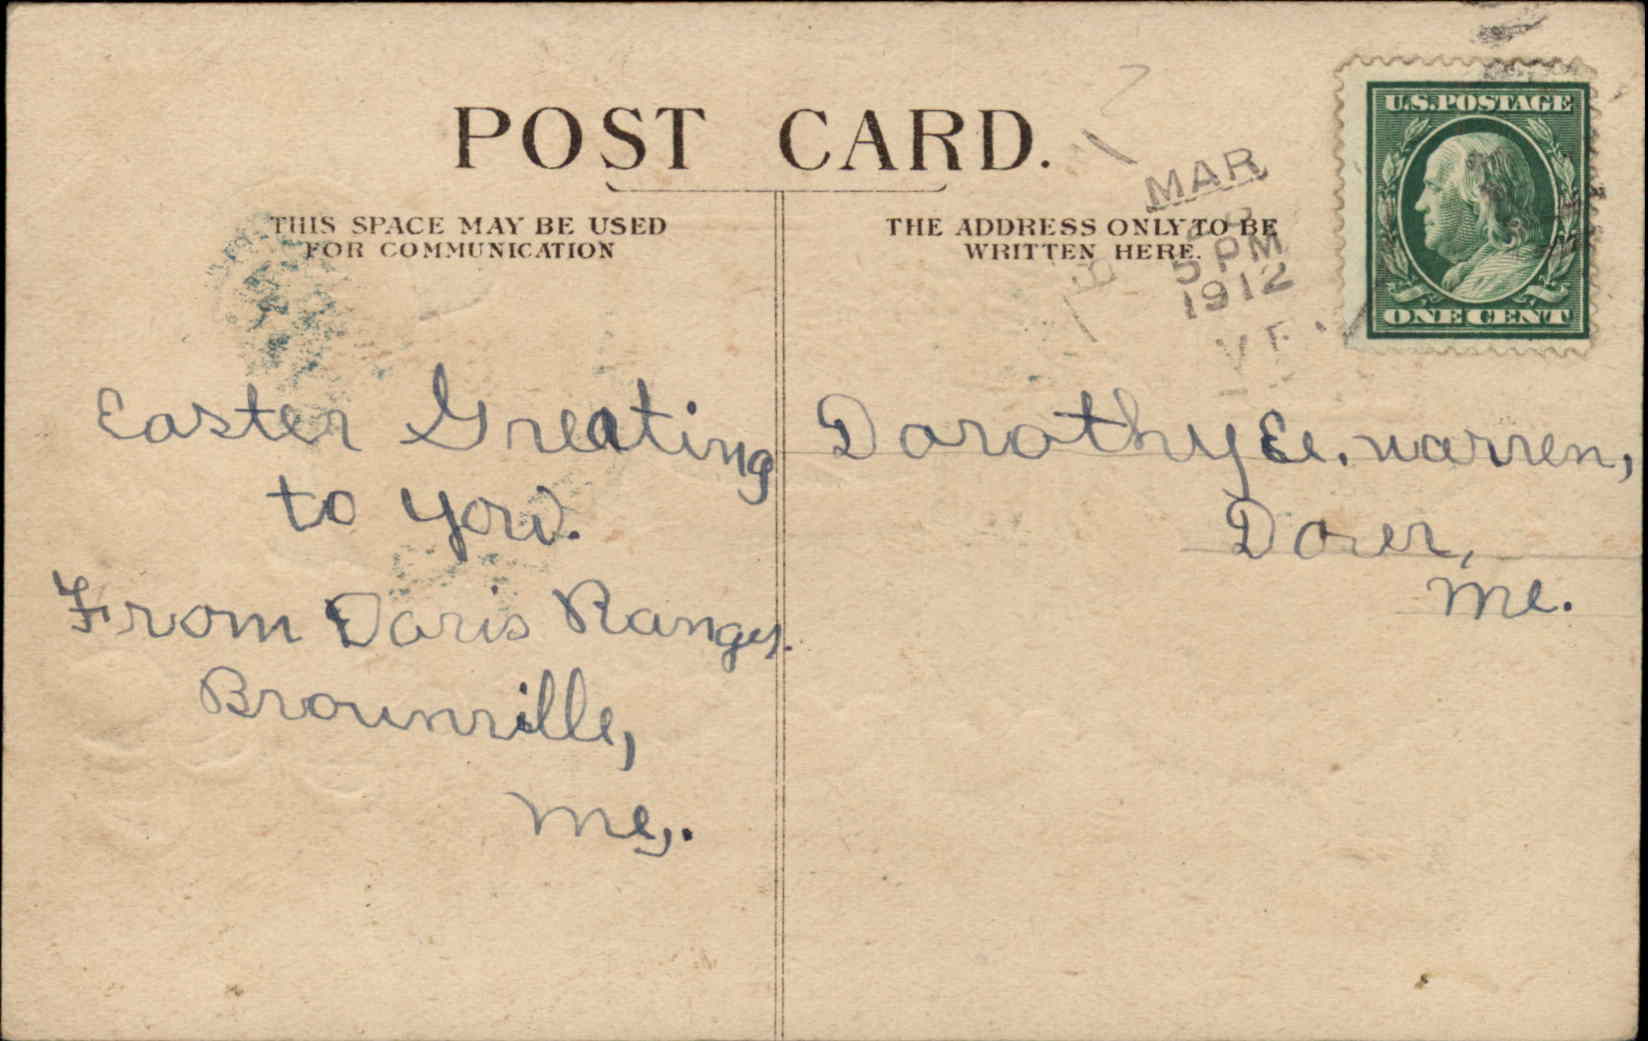 POST CARD.
THIS SPACE MAY BE USED
FOR COMMUNICATION
THE ADDRESS ONLY TO BE
WRITTEN HERE.
MAR
5 PM
1912
U.S. POSTAGE
ONE CENT
Easter Greating
to you.
From Doris Ranger.
Brownville,
Me,.
Dorothy E. Warren,
Dover,
Me.